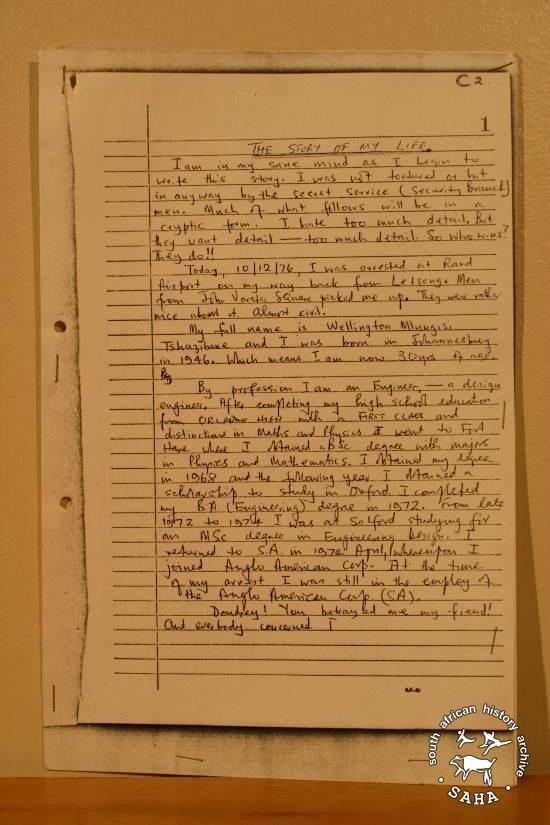 C2
1
THE STORY OF MY LIFE.
I am in my sane mind as I begin to
write this story. I was not tortured or hit
in anyway by the secret service (Security Branch)
men. Much of what follows will be in a
cryptic form. I hate too much detail. But
they want detail — too much detail. So who wins?
They do!!
Today, 10/12/76, I was arrested at Rand
Airport on my way back from Letseng. Men
from John Vorster Square picked me up. They were rather
nice about it. Almost civil.
My full name is Wellington Mlungisi
Tshazibane and I was born in Johannesburg
in 1946. Which means I am now 30yrs of age.
By profession I am an Engineer, — a design
engineer. After completing my high school education
from ORLANDO HIGH with a FIRST CLASS and
distinctions in Maths and Physics I went to Fort
Hare where I obtained a BSc degree with majors
in Physics and Mathematics. I obtained my degree
in 1968 and the following year I obtained a
scholarship to study in Oxford. I completed
my B.A (Engineering) degree in 1972. From late
1972 to 1974 I was at Salford studying for
an MSc degree in Engineering Design. I
returned to S.A. in 1974 April, whereupon I
joined Anglo American Corp. At the time
of my arrest I was still in the employ of
the Anglo American Corp. (SA).
! You betrayed me my friend!
And everybody concerned. I
south african history archive
SAHA